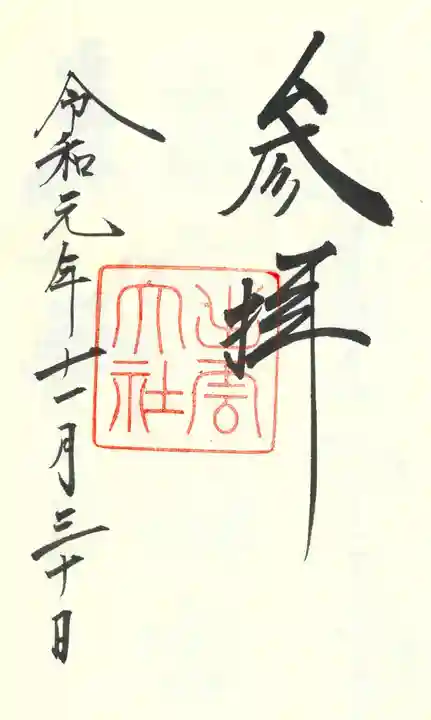 参拝
出雲
大社
令和元年十一月三十日